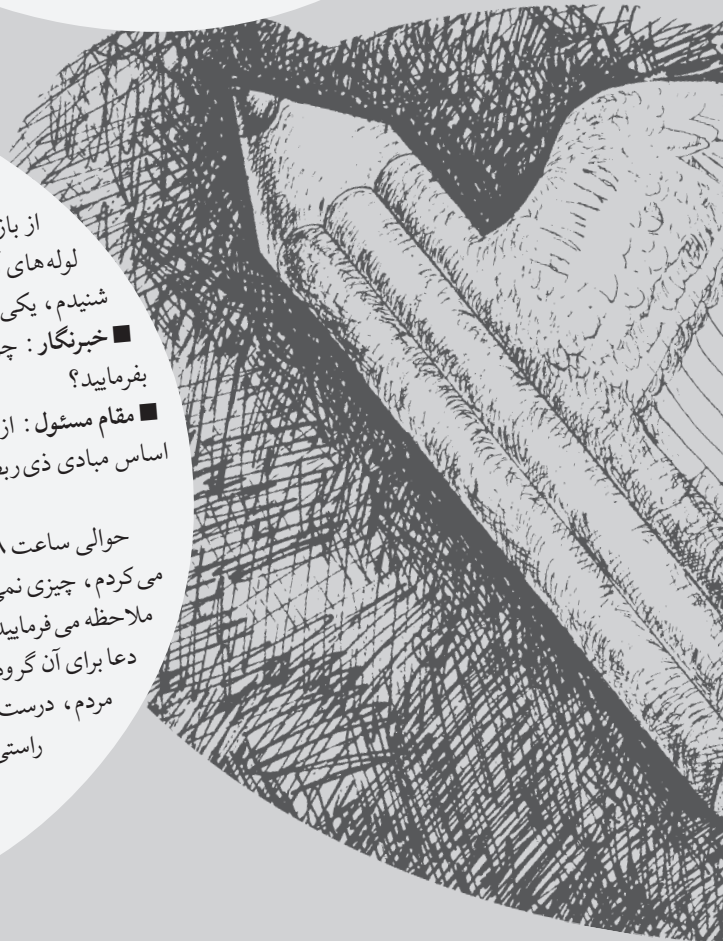 از
لوله‌های
شنیدم، یکی
■ خبرنگار:
بفرمایید؟
■ مقام مسئول: از
اساس مبادی
حوالی ساعت
می‌کردم، چیزی
ملاحظه می‌فرمایید
دعا برای آن
مردم، درست
راستی